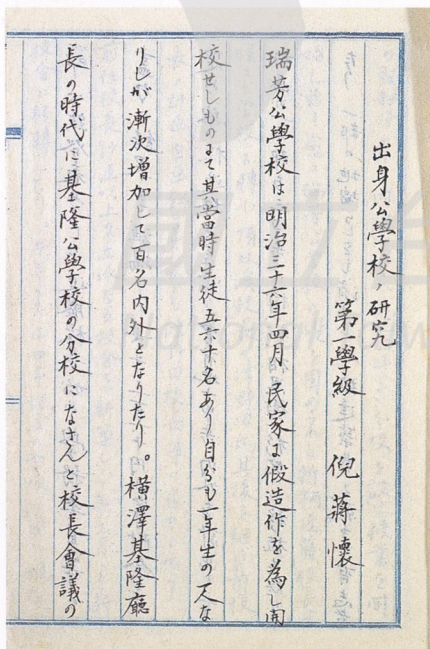 出身公學校ノ研究
第一學級 倪蔣懷
瑞芳公學校は明治三十六年四月民家に假造作を為し開
校せしものにて其當時生徒五六十名あり自分も一年生の一人な
りしが漸次増加して百名内外となりたり。横澤基隆廳
長の時代に基隆公學校の分校になさんと校長會議の